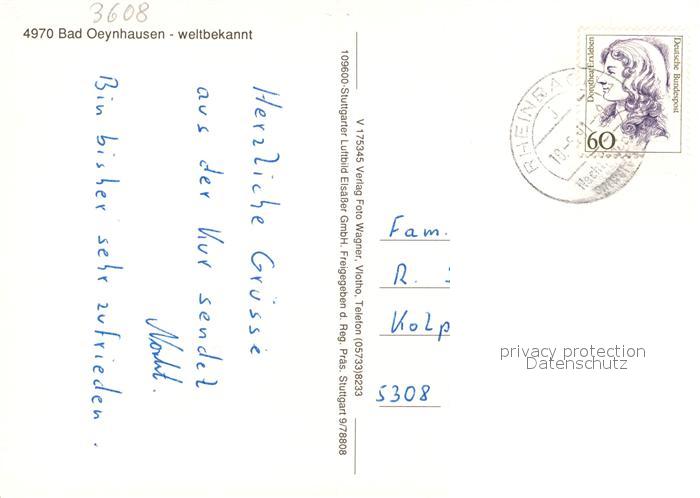 3608
4970 Bad Oeynhausen - weltbekannt
Herzliche Grüsse
aus der Kur sendet
Bin bisher sehr zufrieden.
109600-Stuttgarter Luftbild Elsäßer GmbH. Freigegeben d. Reg. Präs. Stuttgart 9/78808
V 175345 Verlag Foto Wagner, Vlotho, Telefon (05733)8233
Deutsche Bundespost
Dorothea Erxleben
60
RHEINBA
Fam.
R.
Kolp
5308
privacy protection
Datenschutz